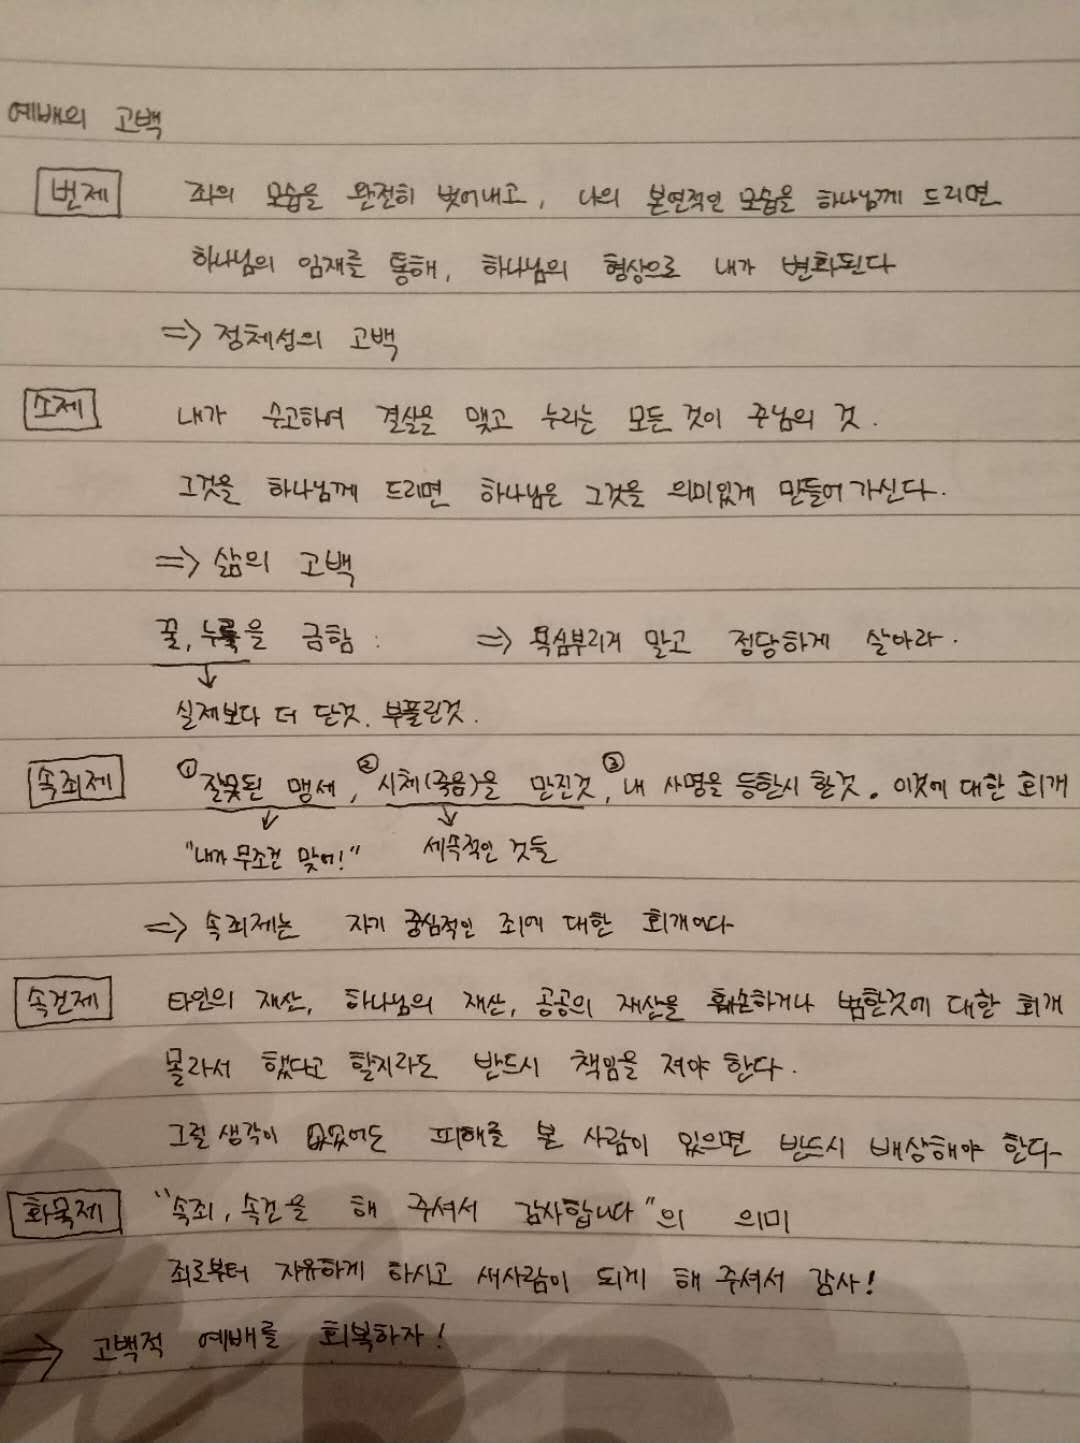 예배의 고백
번제 죄의 모습을 완전히 벗어내고, 나의 본연적인 모습을 하나님께 드리면
하나님의 임재를 통해, 하나님의 형상으로 내가 변화된다
=> 정체성의 고백
소제 내가 수고하여 결실을 맺고 누리는 모든 것이 주님의 것.
그것을 하나님께 드리면 하나님은 그것을 의미있게 만들어 가신다.
=> 삶의 고백
꿀, 누룩을 금함 : => 욕심부리지 말고 정당하게 살아라.
↓
실제보다 더 단것. 부풀린것.
속죄제 ①잘못된 맹세, ②시체(죽음)을 만진것, ③내 사명을 등한시 할것. 이것에 대한 회개
↓ ↓
"내가 무조건 맞어!" 세속적인 것들
=> 속죄제는 자기 중심적인 죄에 대한 회개이다
속건제 타인의 재산, 하나님의 재산, 공공의 재산을 훼손하거나 범한것에 대한 회개
몰라서 했다고 할지라도 반드시 책임을 져야 한다.
그럴 생각이 없었어도 피해를 본 사람이 있으면 반드시 배상해야 한다
화목제 "속죄, 속건을 해 주셔서 감사합니다"의 의미
죄로부터 자유하게 하시고 새사람이 되게 해 주셔서 감사!
=> 고백적 예배를 회복하자!